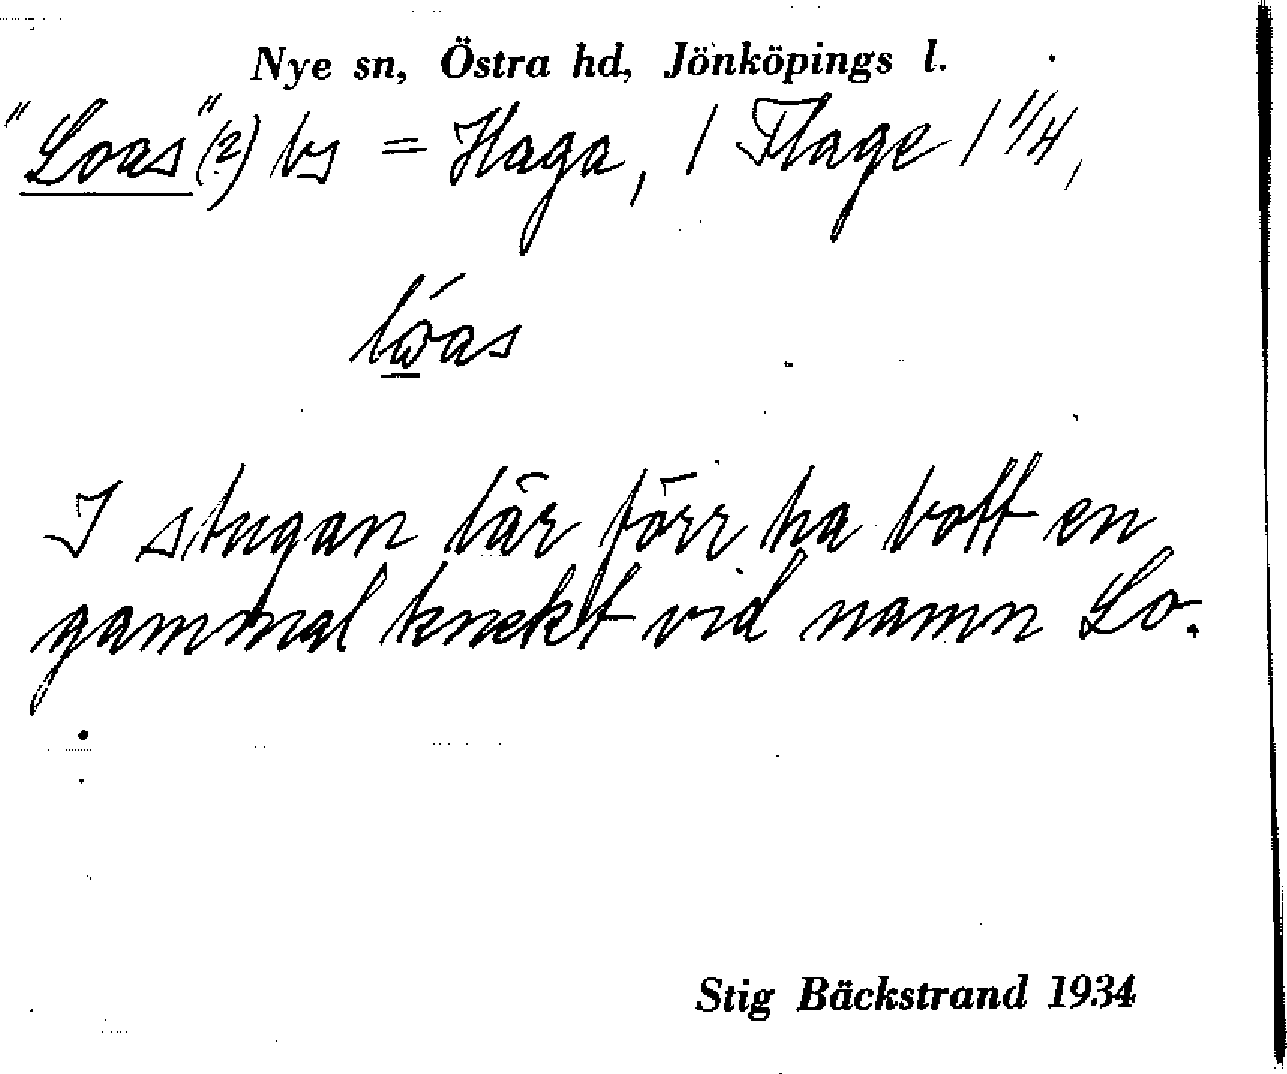 Nye sn, Östra hd, Jönköpings l.
"Loas" (?) bs = Haga, / Flage 1 1/4,
lóas
I stugan lär förr ha bott en
gammal knekt vid namn Lo.
Stig Bäckstrand 1934